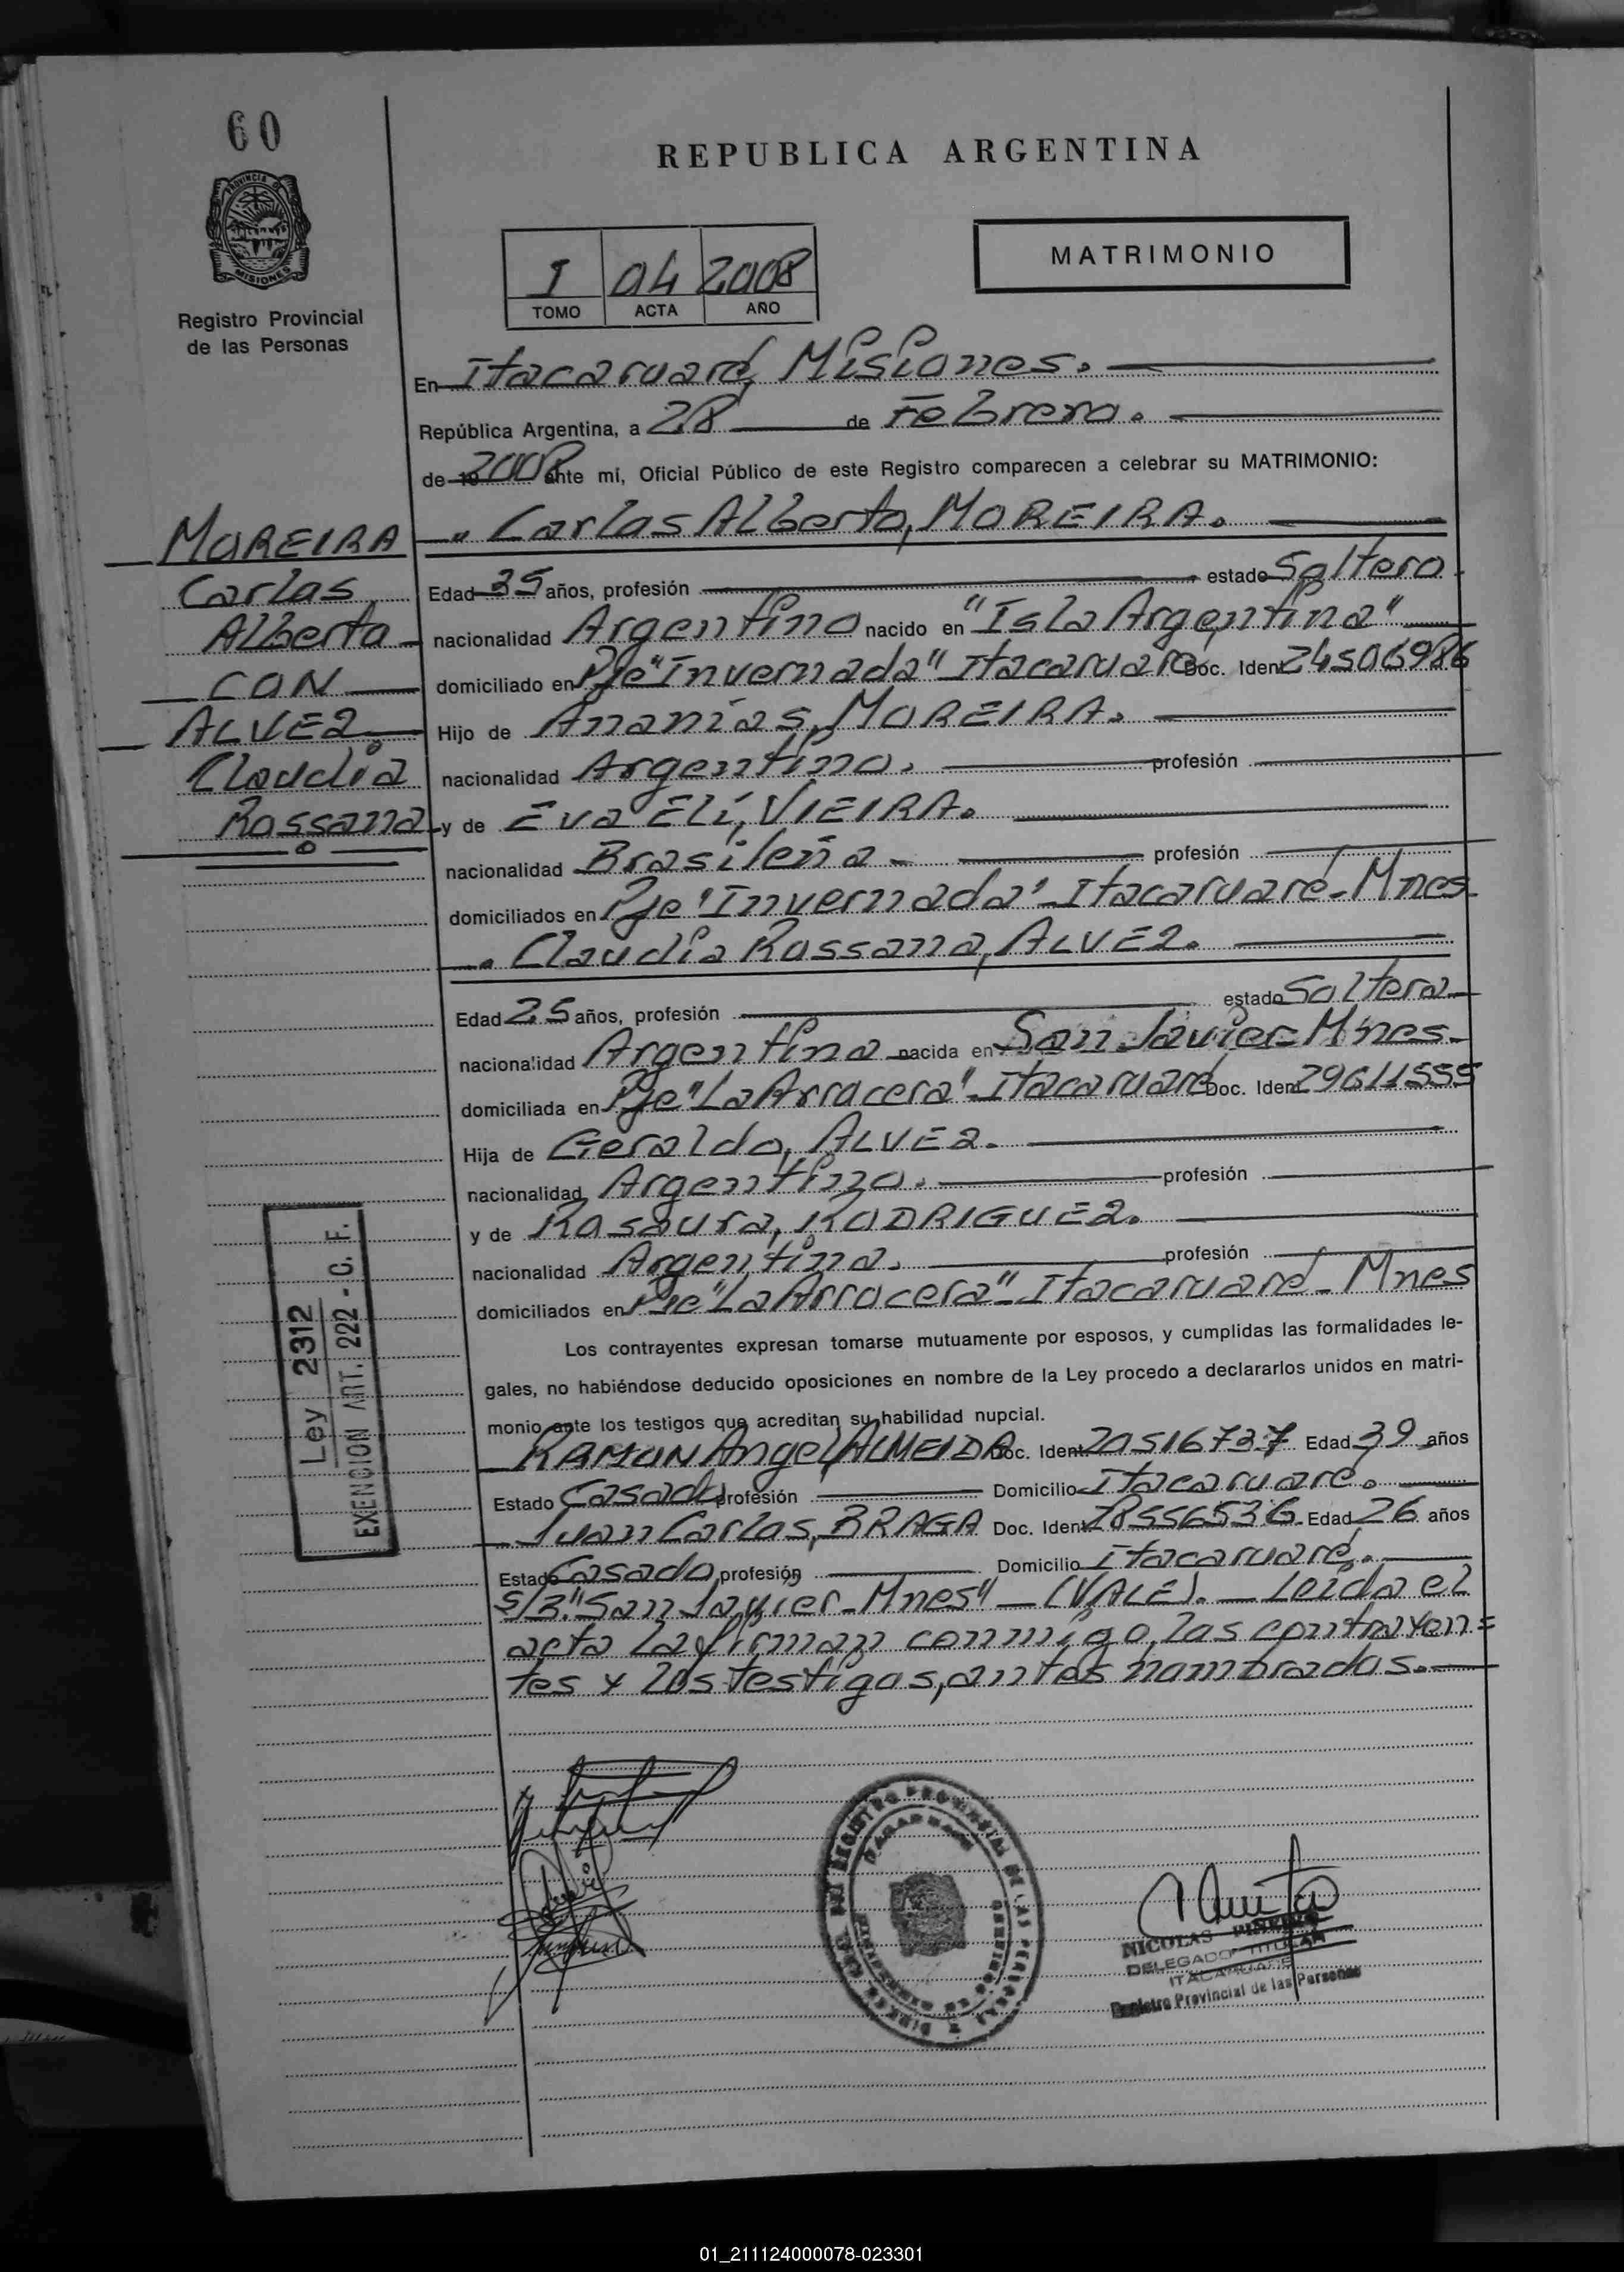 60
REPUBLICA ARGENTINA
PROVINCIA DE
MISIONES
Registro Provincial
de las Personas
I 04 2008
TOMO ACTA AÑO
MATRIMONIO
En Itacaruaré, Misiones.
República Argentina, a 28 de Febrero.
de 19 2008 ante mi, Oficial Público de este Registro comparecen a celebrar su MATRIMONIO:
MOREIRA
Carlos
Alberto
CON
ALVEZ
Claudia
Rossana
Carlos Alberto, MOREIRA.
Edad 35 años, profesión estado Soltero
nacionalidad Argentino nacido en "Isla Argentina"
domiciliado en Pje "Invernada" Itacaruaré Doc. Ident. 24506986
Hijo de Ananías, MOREIRA.
nacionalidad Argentino. profesión
y de Eva Elí, VIEIRA.
nacionalidad Brasileña profesión
domiciliados en Pje "Invernada" Itacaruaré-Mnes
Claudia Rossana, ALVEZ.
Edad 25 años, profesión estado Soltera
nacionalidad Argentina nacida en San Javier-Mnes-
domiciliada en Pje "La Arrocera" Itacaruaré Doc. Ident. 29611555
Hija de Geraldo, ALVEZ.
nacionalidad Argentino. profesión
y de Rosaura, RODRIGUEZ.
nacionalidad Argentina. profesión
domiciliados en Pje "La Arrocera" Itacaruaré-Mnes
Los contrayentes expresan tomarse mutuamente por esposos, y cumplidas las formalidades le-
gales, no habiéndose deducido oposiciones en nombre de la Ley procedo a declararlos unidos en matri-
monio ante los testigos que acreditan su habilidad nupcial.
RAMON Angel, ALMEIDA Doc. Ident. 20516737 Edad 39 años
Estado Casado profesión Domicilio Itacaruaré.
Juan Carlos, BRAGA Doc. Ident. 28556536 Edad 26 años
Estado Casado profesión Domicilio Itacaruaré.
S/R "San Javier-Mnes" (VALE). Leída el
acta la firman conmigo, los contrayen=
tes y los testigos, antes nombrados.
Ley 2312
EXENCION ART. 222 - C. F.
NICOLAS PIÑEIRO
DELEGADO TITULAR
ITACARUARE
Registro Provincial de las Personas
01_211124000078-023301